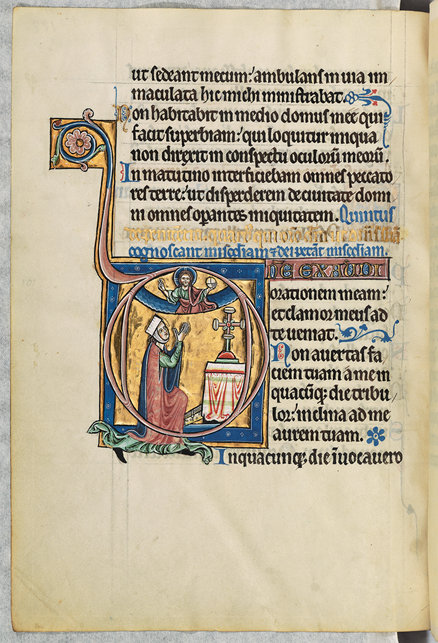 ut sedeant mecum: ambulans in uia im
maculata hic michi ministrabat.
Non habitabit in medio domus mee qui
facit superbiam: qui loquitur iniqua
non direxit in conspectu oculorum meorum.
In matutino interficiebam omnes peccato
res terre: ut disperderem de ciuitate domi
ni omnes operantes iniquitatem. Quintus
cognoscant misericordiam
NE EXAUDI
orationem meam:
et clamor meus ad
te ueniat.
Non auertas fa
ciem tuam a me in
quacumque die tribu
lor: inclina ad me
aurem tuam.
In quacumque die inuocauero